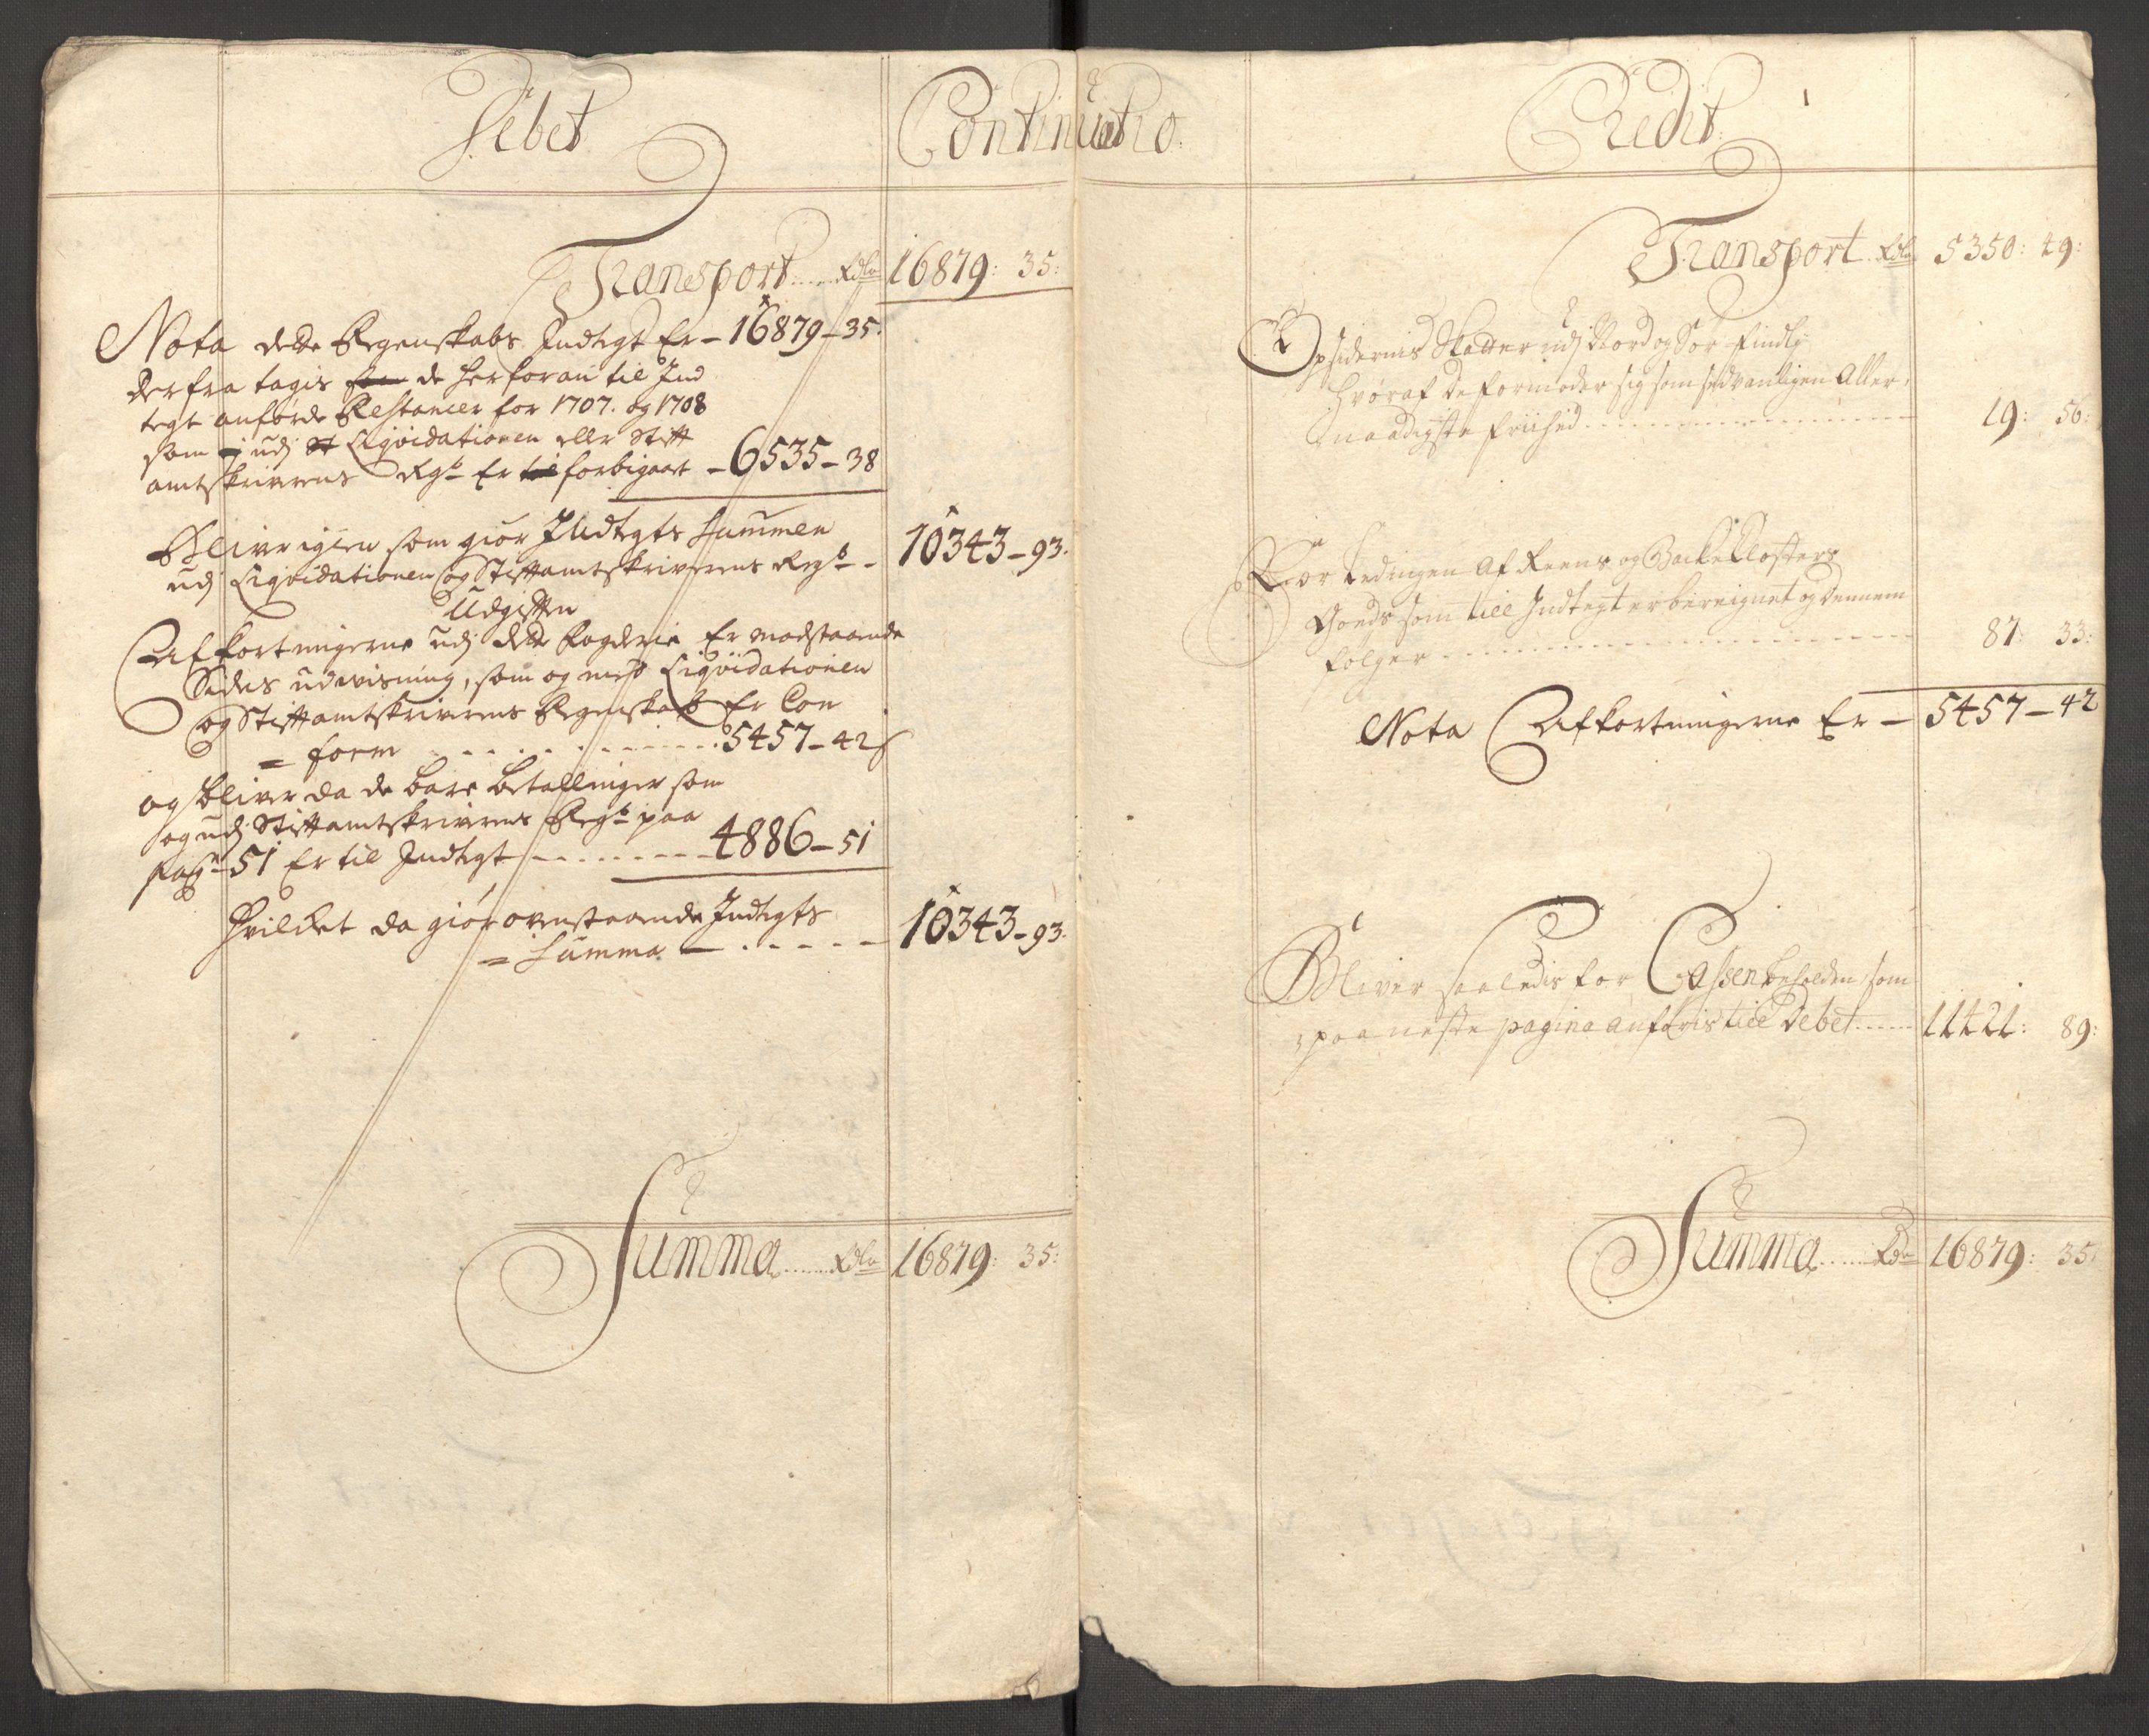 Debet
Continuatio
Credit
Transport ..... Rdlr 16879: 35:
Nota dette Regenskabs Indtegt Er – 16879 – 35.
derfra tagis de her foran til Ind
tegt anførde Restancer for 1707. og 1708
som udj Liqvidationen eller Stift
amtskrivrens Rgb Er forbigaaet – 6535 – 38
Blivr igien som giør Indtegts Summen
udj Liqvidationen og Stiftamtskriverens Regb – 10343 – 93.
Udgiften
Afkortningerne udj dette Fogderie Er modstaaende
Sides udvisning, som og med Liqvidationen
og Stiftamtskrivrens Regenskab Er Con
= form . . . . . . . . 5457 – 42 ß
og bliver da de bare betallinger som
og udj Stiftamtskrivrens Regb paa
Pag 51 Er til Indtegt . . . . . . . . 4886 – 51
Hvilket da giør ovenstaaende Indtegts
= Summa – . . . . . 10343 – 93.
Summa ....... Rdlr 16879: 35:
Transport .. Rdlr 5350: 49:
Opsidernis Skatter udj Nord og Sør Findlj
hvoraf de formoder sig som sedvanligen Aller,
naadigste friihed . . . . . . . . . . 19: 56:
For Ledingen Af Reens og Backe Closters
Goeds som till Indtegt er bereignet og dennem
følger . . . . . . . . . . 87: 33:
Nota Afkortningerne Er – 5457 – 42
Bliver saaledis for Cassen beholden som
paa neste pagina anføris till Debet ..... 11421: 89:
Summa ..... Rdr 16879: 35: